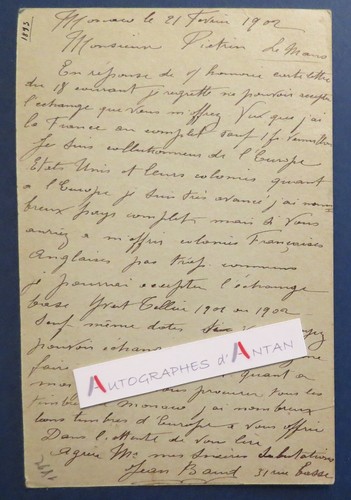 1893
Monaco le 21 Février 1902
Monsieur Pietrin Le Mans
En réponse de v/ honorée carte lettre
du 18 courant je regrette ne pouvoir accepter
l'échange que vous m'offrez Vu que j'ai
la France au complet sauf 1f vermillon
Je suis collectionneur de l'Europe
Etats Unis et leurs colonies quant
a l'Europe je suis très avancé, j'ai nom-
breux pays complets, mais si Vous
auriez a m'offrir colonies Françaises
Anglaises pas trop communs
je pourrai accepter l'échange
base Yvert Tellier 1901 ou 1902
Sauf même date
pouvoir échan
faire quant a
procurer tous les
timb Monaco, j'ai nombreux
bons timbres d'Europe a vous offrir
Dans l'attente de vous lire
agréez Mr mes sincères Salutations
Jean Baud 31 rue Basse
AUTOGRAPHES d'ANTAN